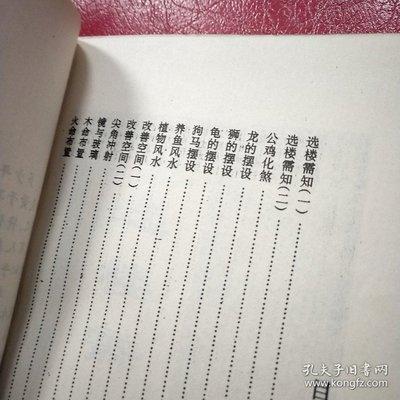 选楼需知(一)
选楼需知(二)
公鸡化煞
龙的摆设
狮的摆设
龟的摆设
狗马摆设
养鱼风水
植物风水
改善空间(一)
改善空间(二)
尖角冲射
镜与玻璃
木命布置
火命布置
孔夫子旧书网
www.kongfz.com